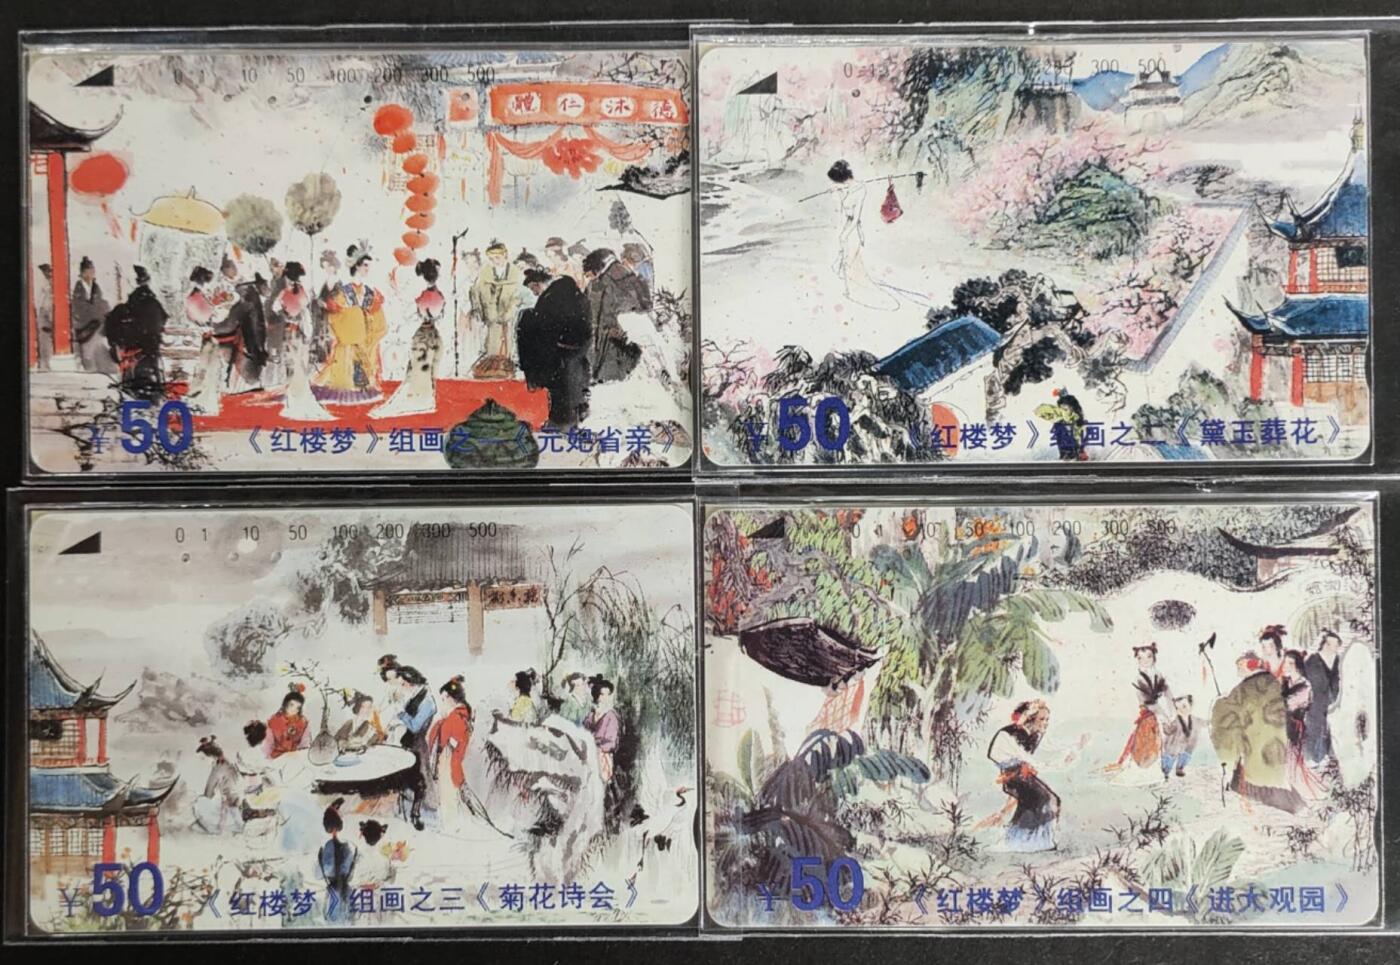 0 1 10 50 100 200 300 500
體仁沐德
¥50 《红楼梦》组画之一《元妃省亲》
300 500
¥50 《红楼梦》组画之二《黛玉葬花》
0 1 10 50 100 200 300 500
¥50 《红楼梦》组画之三《菊花诗会》
0 1 10 50 100 200 300 500
¥50 《红楼梦》组画之四《进大观园》